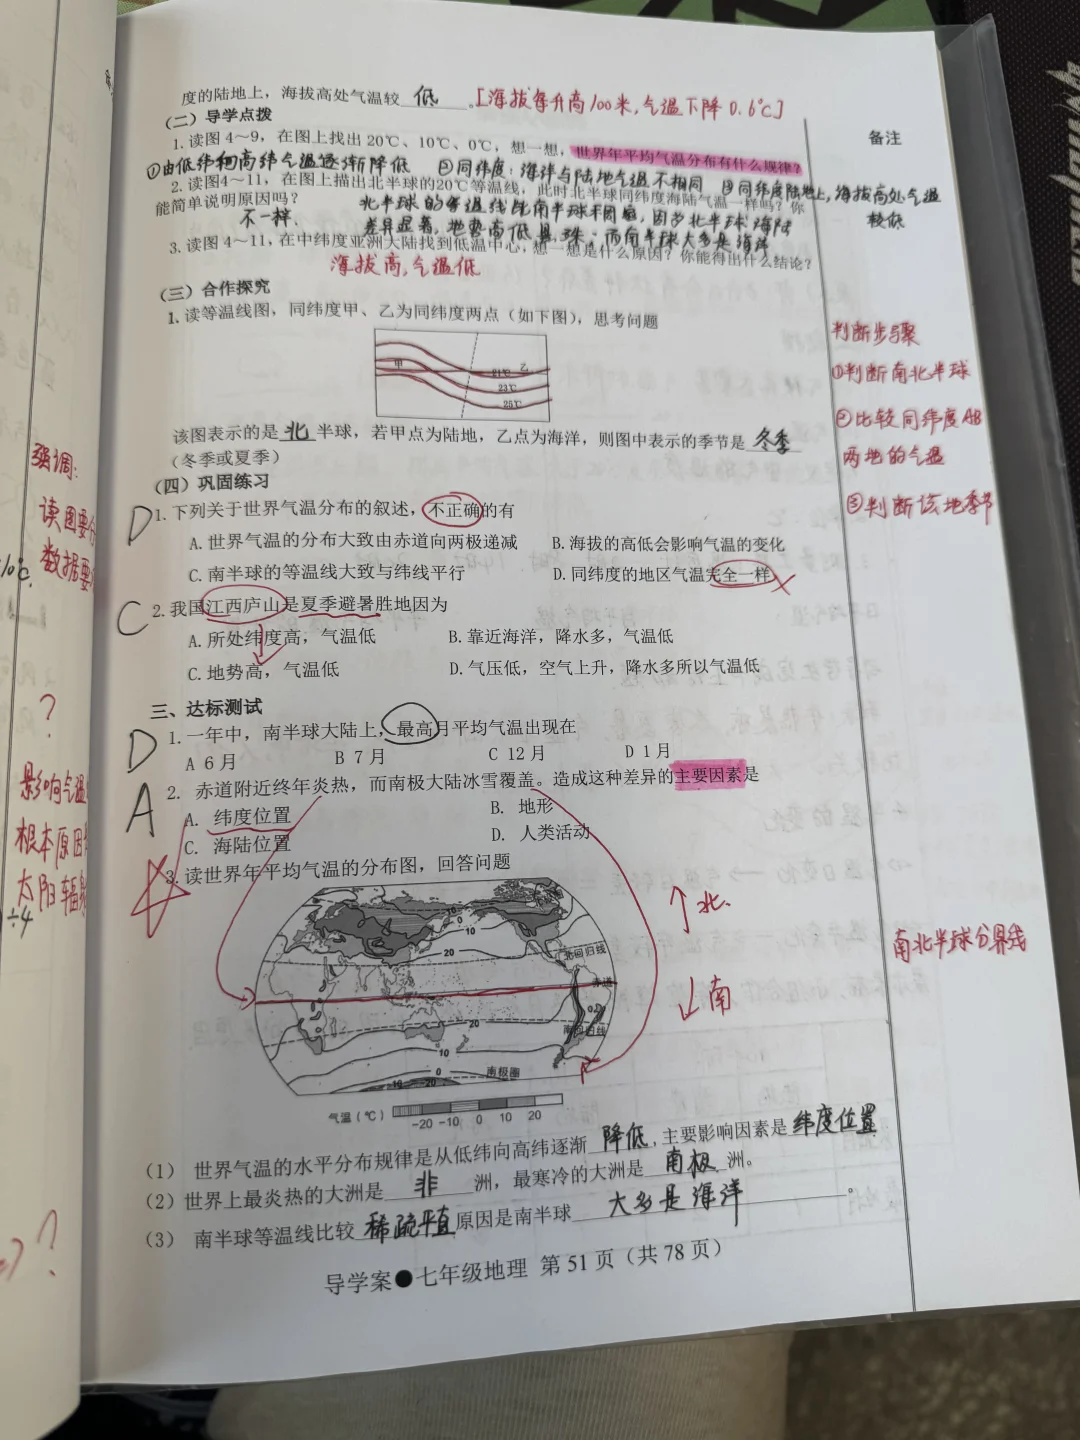 度的陆地上，海拔高处气温较 低 。[海拔每升高100米，气温下降0.6℃]
（二）导学点拨
备注
1. 读图 4～9，在图上找出 20℃、10℃、0℃，想一想，世界年平均气温分布有什么规律？
①由低纬向高纬气温逐渐降低 ②同纬度：海洋与陆地气温不相同 ③同纬度陆地上，海拔高处气温较低
2. 读图4～11，在图上描出北半球的20℃等温线，此时北半球同纬度海陆气温一样吗？你
能简单说明原因吗？
不一样.
北半球的等温线比南半球 因为北半球海陆
差异显著，地势高低悬殊；而南半球大多是海洋
3. 读图 4～11，在中纬度亚洲大陆找到低温中心，想一想是什么原因？你能得出什么结论？
海拔高，气温低
（三）合作探究
1. 读等温线图，同纬度甲、乙为同纬度两点（如下图），思考问题
甲 乙
21℃
23℃
25℃
判断步骤
①判断南北半球
②比较同纬度AB
两地的气温
③判断该地季节
该图表示的是 北 半球，若甲点为陆地，乙点为海洋，则图中表示的季节是 冬季
（冬季或夏季）
（四）巩固练习
D 1. 下列关于世界气温分布的叙述，不正确的有
A. 世界气温的分布大致由赤道向两极递减 B. 海拔的高低会影响气温的变化
C. 南半球的等温线大致与纬线平行 D. 同纬度的地区气温完全一样
C 2. 我国江西庐山是夏季避暑胜地因为
A. 所处纬度高，气温低 B. 靠近海洋，降水多，气温低
C. 地势高，气温低 D. 气压低，空气上升，降水多所以气温低
三、达标测试
D 1. 一年中，南半球大陆上，最高月平均气温出现在
A 6月 B 7月 C 12月 D 1月
A 2. 赤道附近终年炎热，而南极大陆冰雪覆盖。造成这种差异的主要因素是
A. 纬度位置 B. 地形
C. 海陆位置 D. 人类活动
3. 读世界年平均气温的分布图，回答问题
0
10
20
北回归线
赤道
20
南回归线
10
0
南极圈
-10 -20
↑北
↓南
南北半球分界线
气温（℃）
-20 -10 0 10 20
（1） 世界气温的水平分布规律是从低纬向高纬逐渐 降低，主要影响因素是 纬度位置
（2）世界上最炎热的大洲是 非 洲，最寒冷的大洲是 南极 洲。
（3） 南半球等温线比较 稀疏平直 原因是南半球 大多是海洋 。
导学案●七年级地理 第 51 页（共 78 页）
强调：
读图要
数据要
10℃.
?
影响气温
根本原因
太阳辐射
÷4
?